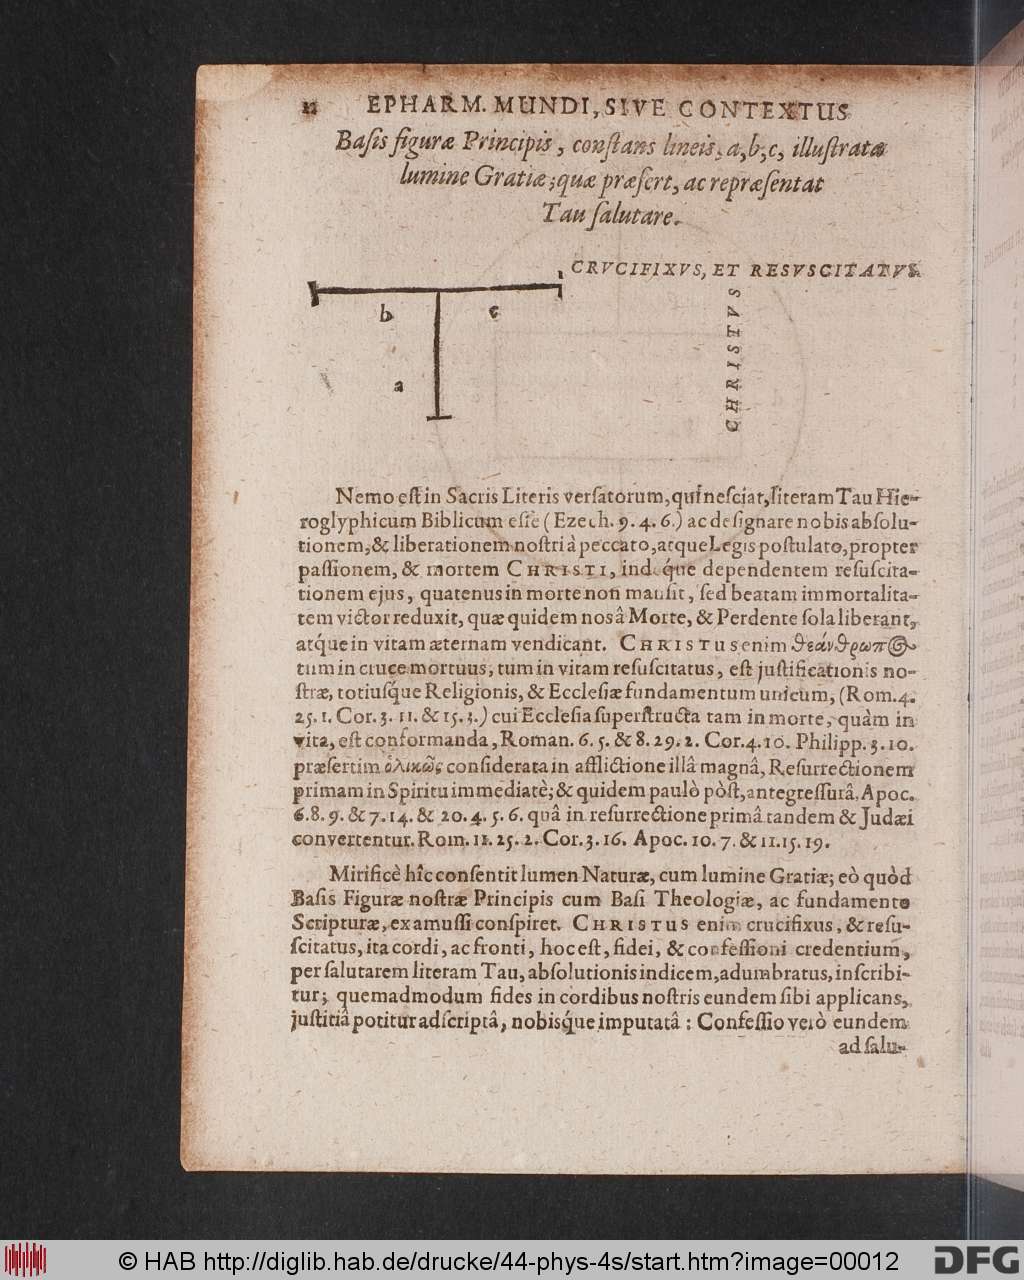 12 EPHARM. MUNDI, SIVE CONTEXTUS
Baſis figuræ Principis, conſtans lineis, a, b, c, illuſtrata
lumine Gratiæ; quæ præfert, ac repræſentat
Tau ſalutare.
CRVCIFIXVS, ET RESVSCITATVS.
CHRISTVS
b c
a
Nemo eſt in Sacris Literis verſatorum, qui neſciat, literam Tau Hie-
roglyphicum Biblicum eſſe (Ezech. 9. 4. 6.) ac deſignare nobis abſolu-
tionem, & liberationem noſtri à peccato, atque Legis poſtulato, propter
paſſionem, & mortem CHRISTI, indeq́ue dependentem reſuſcita-
tionem ejus, quatenus in morte non manſit, ſed beatam immortalita-
tem victor reduxit, quæ quidem nos â Morte, & Perdente ſola liberant,
atq́ue in vitam æternam vendicant. CHRISTUS enim θεάνθρωπος
tum in cruce mortuus, tum in vitam reſuſcitatus, eſt juſtificationis no-
ſtræ, totiusq́ue Religionis, & Eccleſiæ fundamentum unicum, (Rom. 4.
25. 1. Cor. 3. 11. & 15. 3.) cui Eccleſia ſuperſtructa tam in morte, quàm in
vita, eſt conformanda, Roman. 6. 5. & 8. 29. 2. Cor. 4. 10. Philipp. 3. 10.
præſertim ὁλικῶς conſiderata in afflictione illâ magnâ, Reſurrectionem
primam in Spiritu immediatè; & quidem paulò pòſt, antegreſſurâ, Apoc.
6. 8. 9. & 7. 14. & 20. 4. 5. 6. quâ in reſurrectione primâ tandem & Judæi
convertentur. Rom. 11. 25. 2. Cor. 3. 16. Apoc. 10. 7. & 11. 15. 19.
Mirificè hîc conſentit lumen Naturæ, cum lumine Gratiæ; eò quòd
Baſis Figuræ noſtræ Principis cum Baſi Theologiæ, ac fundamento
Scripturæ, examuſſi conſpiret. CHRISTUS enim crucifixus, & reſu-
ſcitatus, ita cordi, ac fronti, hoc eſt, fidei, & confeſſioni credentium,
per ſalutarem literam Tau, abſolutionis indicem, adumbratus, inſcribi-
tur; quemadmodum fides in cordibus noſtris eundem ſibi applicans,
juſtitiâ potitur adſcriptâ, nobisq́ue imputatâ: Confeſſio verò eundem
ad ſalu-
© HAB http://diglib.hab.de/drucke/44-phys-4s/start.htm?image=00012
DFG